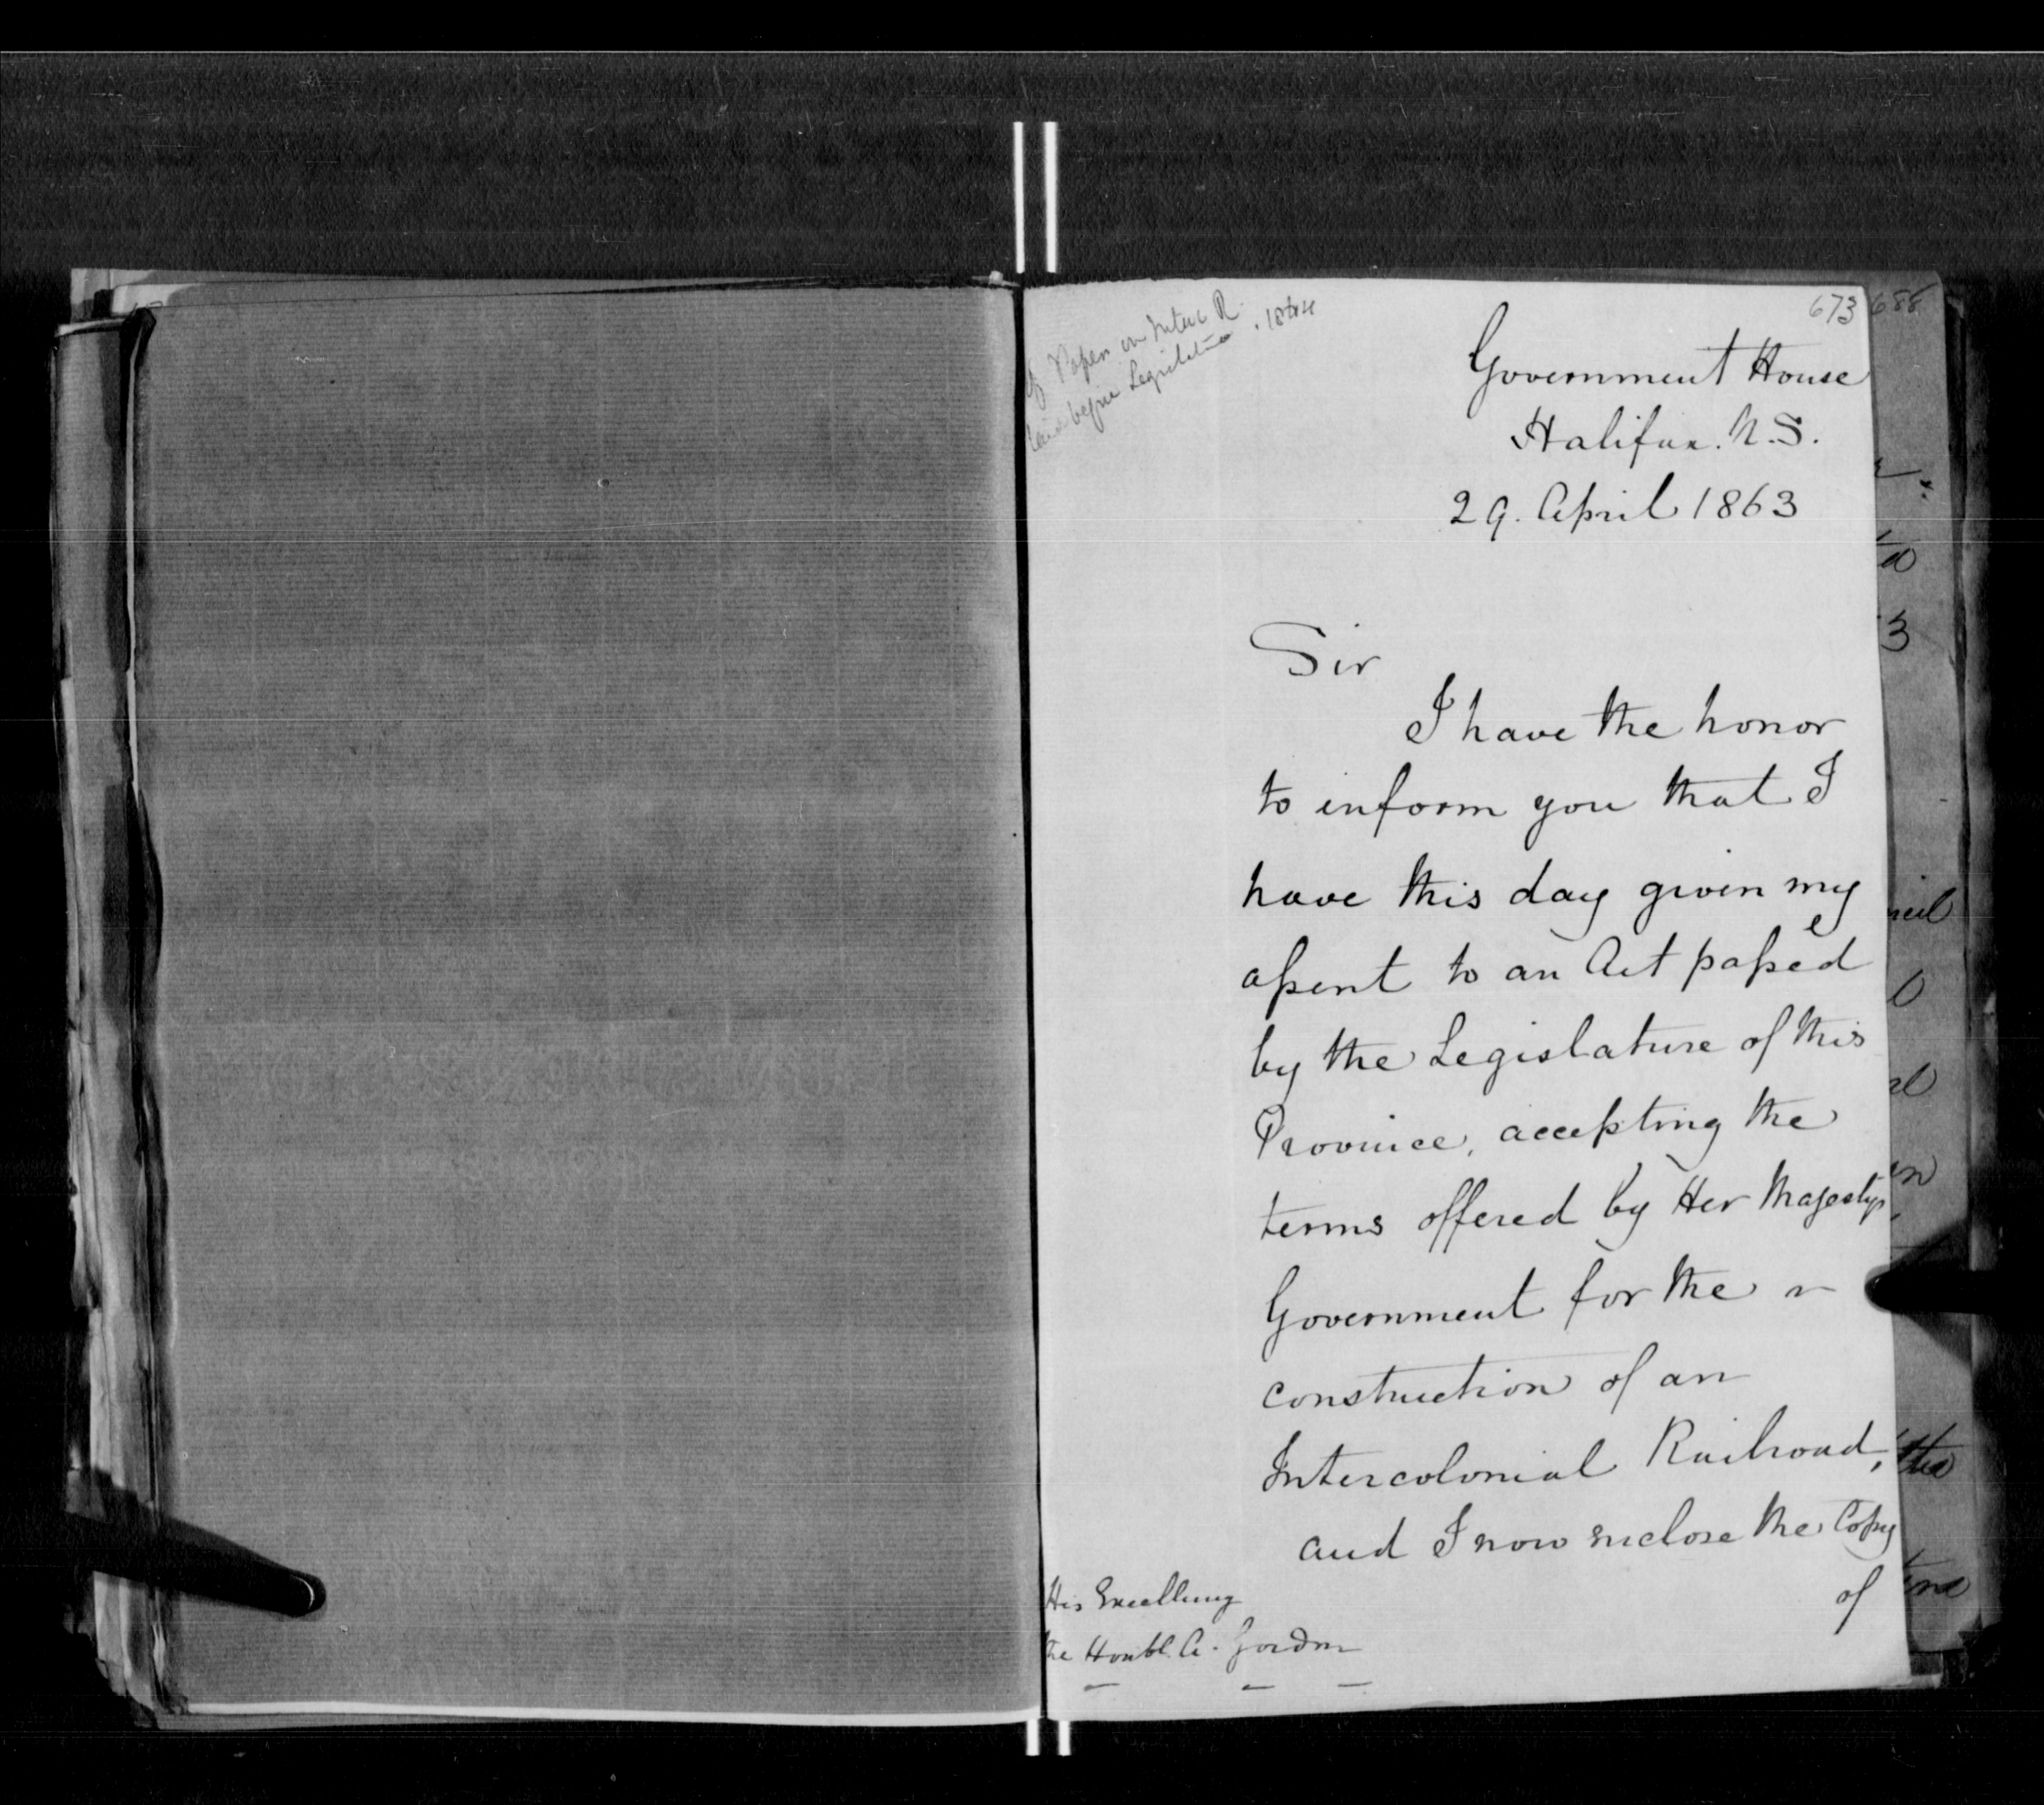 673
688
Papers on Interc R.
laid before Legislature . 1864
Government House
Halifax. N.S.
29. April 1863
Sir
I have the honor
to inform you that I
have this day given my
assent to an Act passed
by the Legislature of this
Province, accepting the
terms offered by Her Majesty's
Government for the
construction of an
Intercolonial Railroad,
and I now enclose the Copy
of
His Excellency
the Honbl. A. Gordon